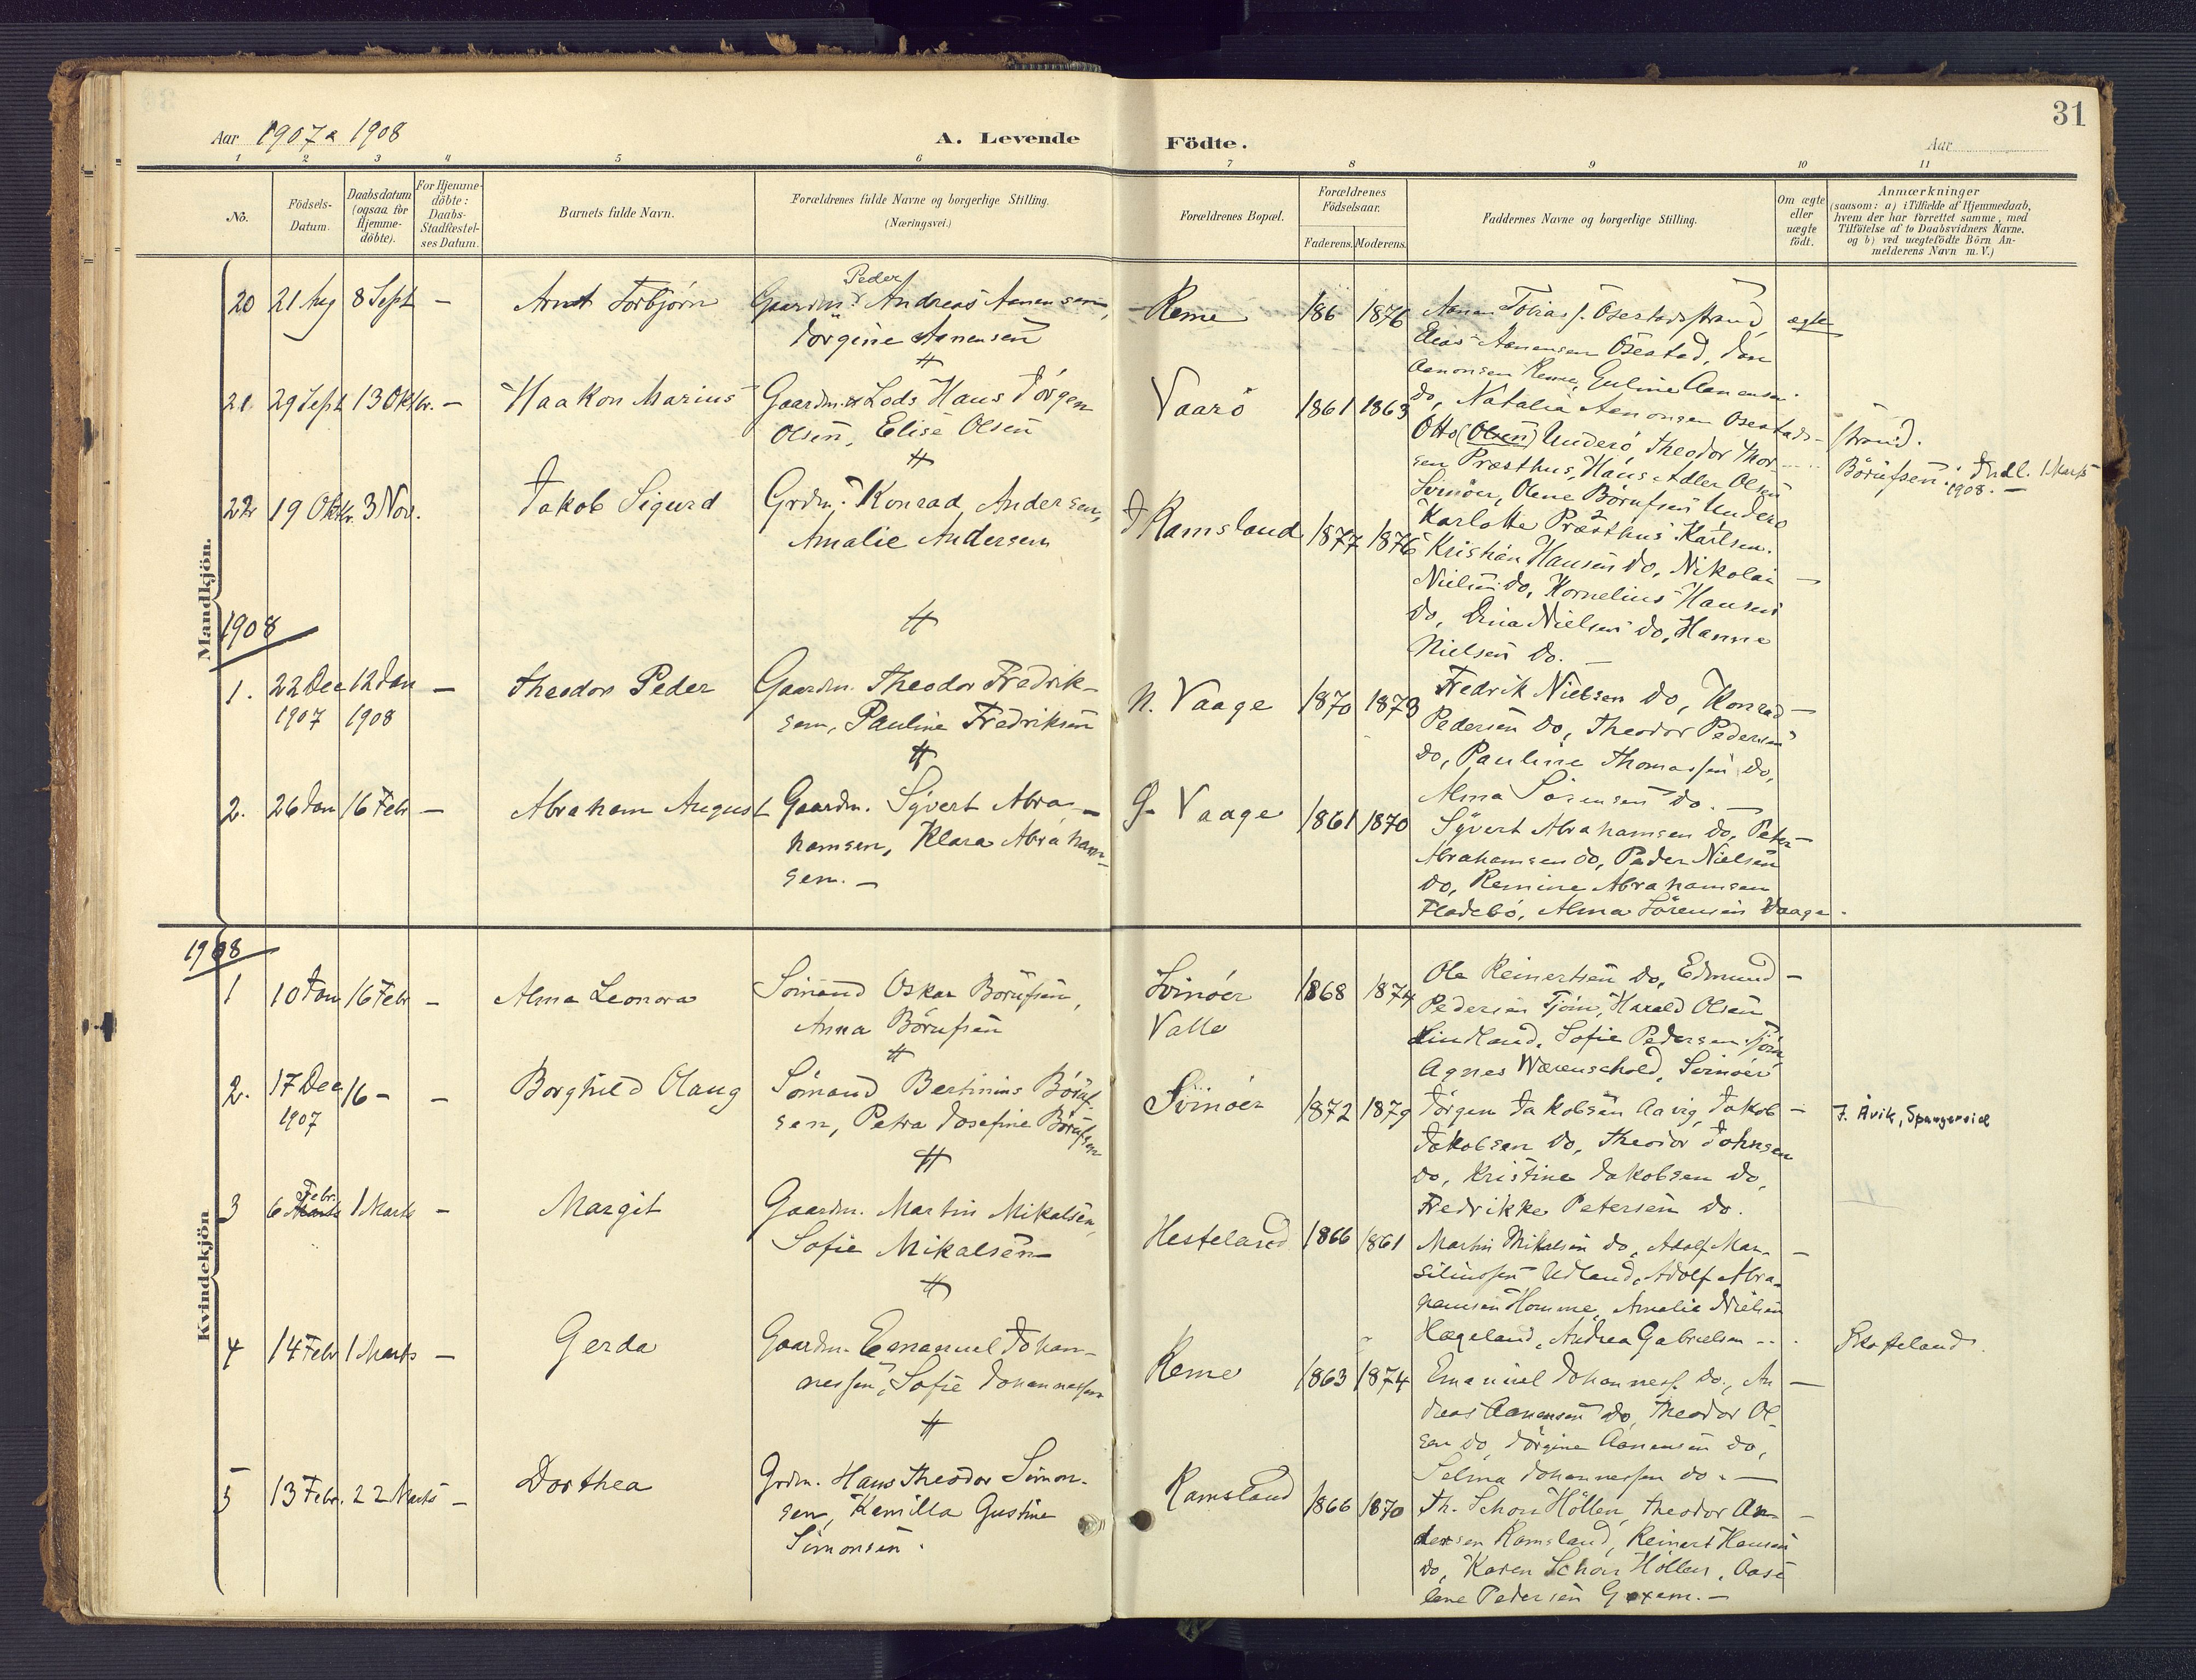 31
Aar 1907 & 1908
A. Levende
Födte.
Aar
1 2 3 4 5 6 7 8 9 10 11
No.
Födsels-
Datum.
Daabsdatum
(ogsaa for
Hjemme-
döbte).
For Hjemme-
döbte:
Daabs-
Stadfæstel-
ses Datum.
Barnets fulde Navn.
Forældrenes fulde Navne og borgerlige Stilling.
(Næringsvei.)
Forældrenes Bopæl.
Forældrenes
Födselsaar.
Faderens. Moderens.
Faddernes Navne og borgerlige Stilling.
Om ægte
eller
uægte
födt.
Anmærkninger
(saasom: a) i Tilfælde af Hjemmedaab,
hvem der har forrettet samme, med
Tilföielse af to Daabsvidners Navne.
og b) ved uægtefödte Börn An-
melderens Navn m. V.)
Mandkjön.
20 21 Aug 8 Sept - Arnt Torbjørn
Peder
Gaardm. Andreas Aanensen,
Jörgine Aanensen
Reme 186 1876
Aanen Tobias s. Osestadstrand,
Aanensen Osestad,
Aanonsen Reme, Guline Aanensen
do, Natalia Aanonsen Osestads-
strand.
ægte
21. 29 Sept 13 Oktbr. - Haakon Marius
Gaardm. & Lods Hans Jörgen
Olsen, Elise Olsen
Vaarö 1861 1863
Otto (Olsen) Underö, Theodor Thor-
sen Præsthus, Hans Adler Olsen
Svinöer, Olene Börufsen Underö
Karlotte Præsthus Karlsen.
Börufsen. Indl. 1 Marts
1908. -
22 19 Oktbr. 3 Nov. Jakob Sigurd
Grdm. Konrad Andersen,
Amalie Andersen
Ramsland 1877 1876
Kristian Hansen do, Nikolai -
Nielsen do, Kornelius Hansen
do, Dina Nielsen do, Hanna
Nielsen do. -
1908
1. 22 Dec 12 Jan - Theodor Peder
1907 1908
Gaardm. Theodor Fredrik-
sen, Pauline Fredriksen
N. Vaage 1870 1873
Fredrik Nielsen do, Konrad -
Pedersen do, Theodor Pedersen
do, Pauline Thomassen do,
Alma Sörensen do. -
2. 26 Jan 16 Febr - Abraham August
Gaardm. Syvert Abra-
hamsen, Klara Abraham-
sen. -
G. Vaage 1861 1870
Syvert Abrahamsen do, Peter -
Abrahamsen do, Peder Nielsen
do, Remine Abrahamsen
Fladebö, Alma Sörensen Vaage.
Kvindekjön
1908
1 10 Jan 16 Febr - Alma Leonora
Sömand Oskar Börufsen,
Anna Börufsen
Svinöer
Valle
1868 1874
Ole Reinertsen do, Edmund -
Pedersen Tjöm, Harald Olsen
Lindland, Sofie Pedersen Tjöm
Agnes Wærenschold, Svinöer
2. 17 Dec 16 - - Borghild Olaug
1907
Sömand Bertinius Böruf-
sen, Petra Josefine Börufsen
Svinöer 1872 1879
Jörgen Jakobsen Aavig, Jakob -
Jakobsen do, Theodor Johnsen
do, Kristine Jakobsen do,
Fredrikke Petersen do.
F. Åvik, Spangereid
3 6 Marts Febr. 1 Marts - Margit
Gaardm. Martin Mikalsen,
Sofie Mikalsen
Hesteland 1866 1861
Martin Mikalsen do, Adolf Mar- -
siliussen Udland, Adolf Abra-
hamsen Homme, Amalie Nielsen
Hægeland, Andrea Gabrielsen
Skofteland.
4 14 Febr 1 Marts - Gerda
Gaardm. Emanuel Johan-
nessen, Sofie Johannessen
Reme 1863 1874
Emanuel Johanness. do., An -
dreas Aanensen do, Theodor Ol-
sen do, Jörgine Aanensen do,
Selma Johannessen do. -
5 13 Febr. 22 Marts - Dorthea
Grdm. Hans Theodor Simon-
sen, Kamilla Gustine
Simonsen.
Ramsland 1866 1870
Th. Schou Höllen, Theodor An- -
dersen Ramsland, Reinert Hansen
do, Karen Schou Höllen, Aase
lene Pedersen